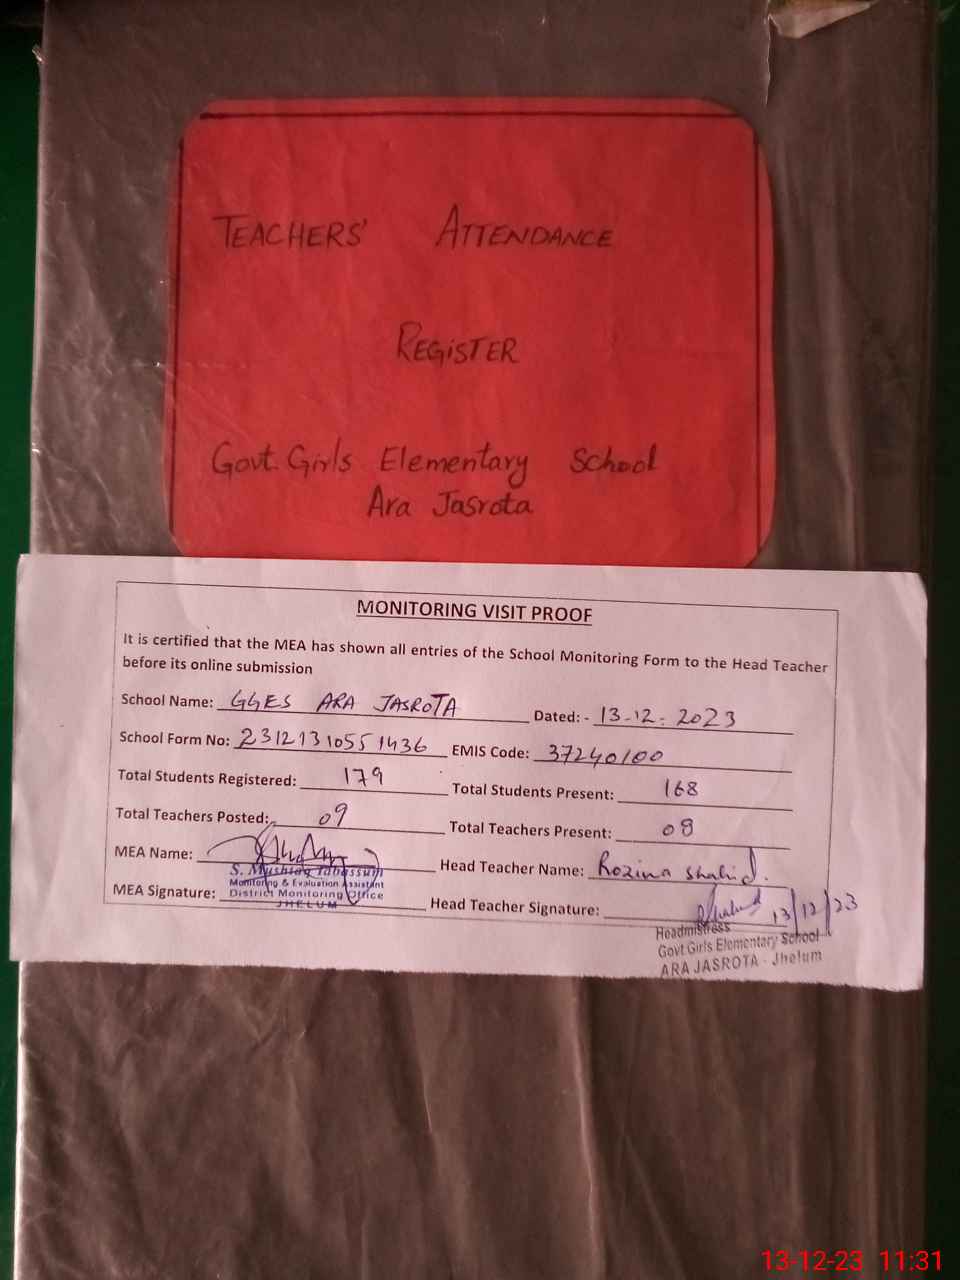 TEACHERS' ATTENDANCE
REGISTER
Govt. Girls Elementary School
Ara Jasrota
MONITORING VISIT PROOF
It is certified that the MEA has shown all entries of the School Monitoring Form to the Head Teacher
before its online submission
School Name: GGES ARA JASROTA Dated: - 13-12-2023
School Form No: 23121310551436 EMIS Code: 37240100
Total Students Registered: 179 Total Students Present: 168
Total Teachers Posted: 09 Total Teachers Present: 08
MEA Name: Head Teacher Name: Rozina Shahid.
S. Mushtaq Tabassum
Monitoring & Evaluation Assistant
District Monitoring Office
JHELUM
MEA Signature: Head Teacher Signature: 13/12/23
Headmistress
Govt.Girls Elementary School
ARA JASROTA - Jhelum
13-12-23 11:31